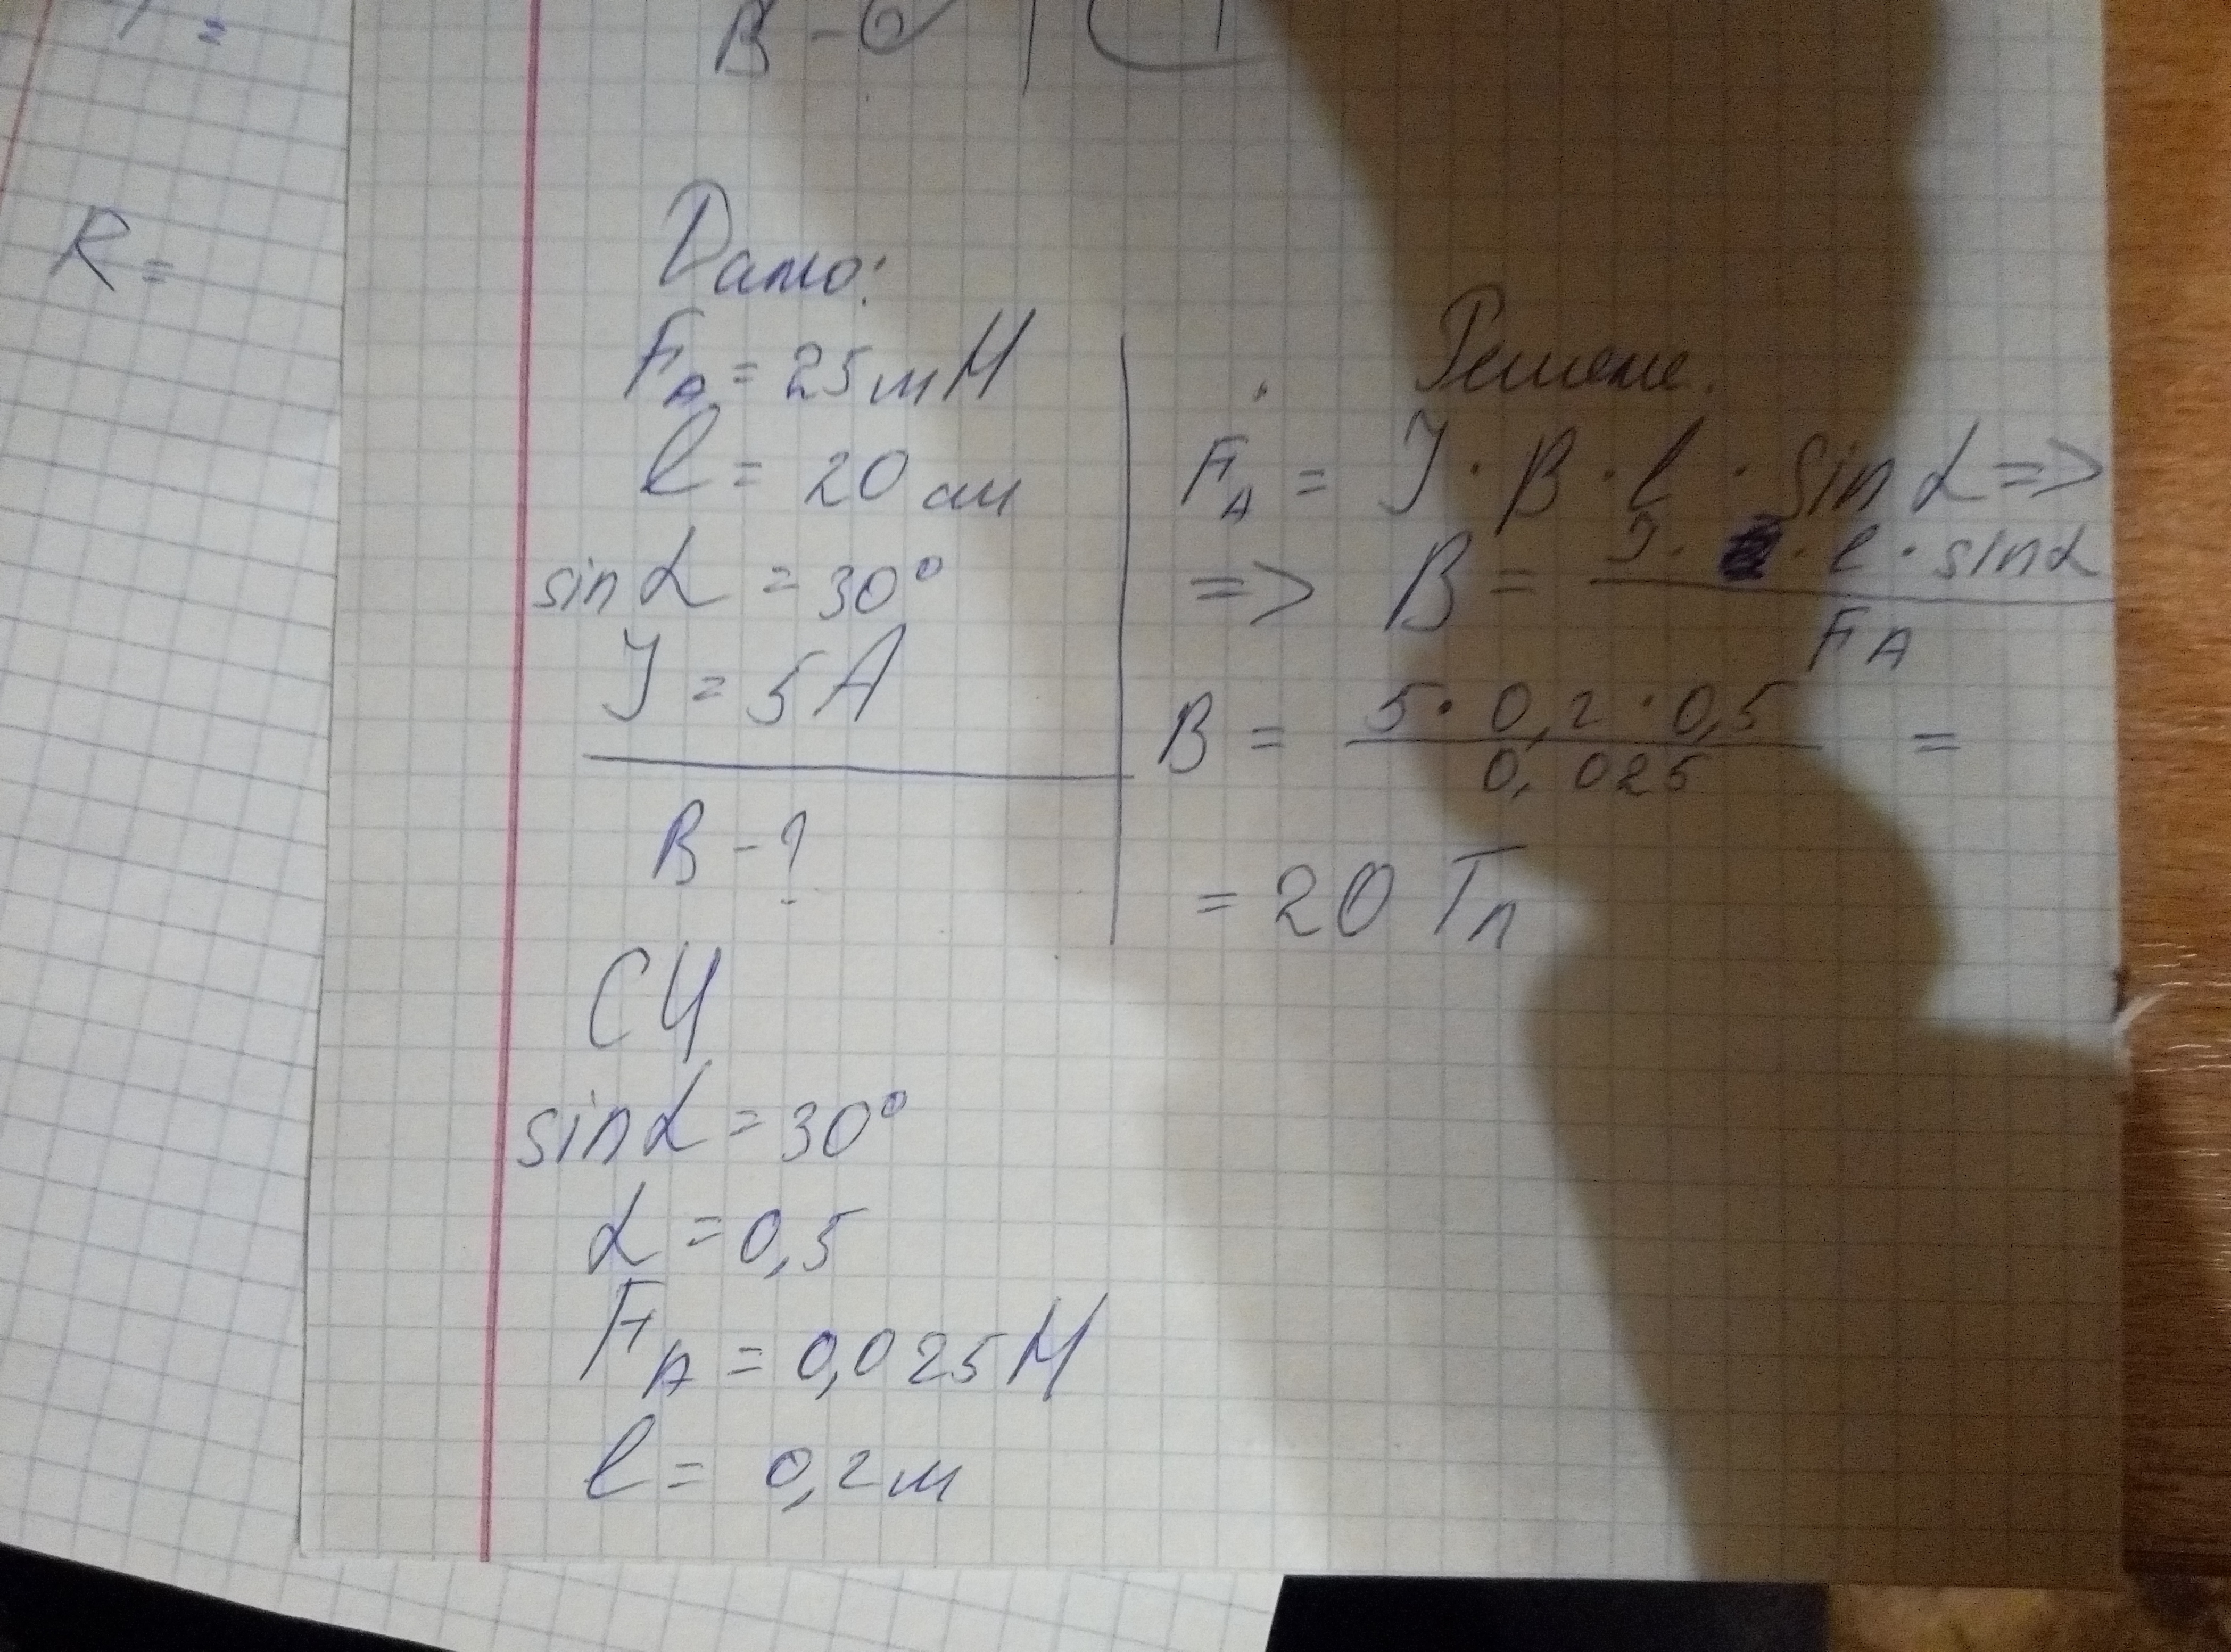 R =
B -
Дано:
F_A = 25 мН
l = 20 см
sin α = 30°
J = 5 A
B - ?
СИ
sin α = 30°
α = 0,5
F_A = 0,025 Н
l = 0,2 м
Решение.
F_A = J · B · l · sin α =>
=> B = J · l · sin α / F_A
B = 5 · 0,2 · 0,5 / 0,025 =
= 20 Тл